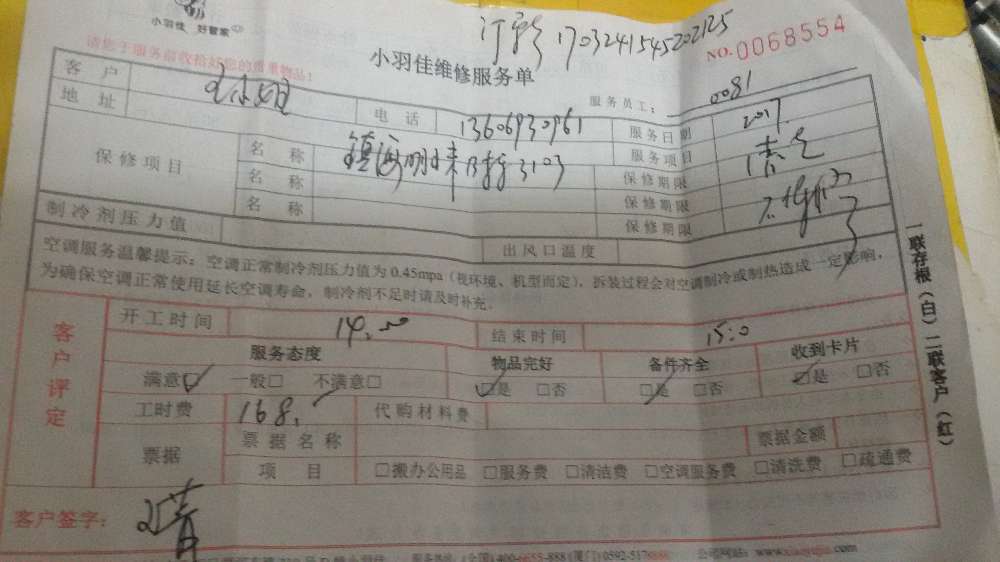 小羽佳 好管家
1703241545202125
请您于服务前收拾好您的贵重物品!
小羽佳维修服务单
NO.0068554
服务员工: 0081
客户 电话 13606930961 服务日期 2017.
地址 3103 服务项目
保修项目 名称 保修期限
名称 保修期限
名称 保修期限
制冷剂压力值 出风口温度
空调服务温馨提示:空调正常制冷剂压力值为0.45mpa(视环境、机型而定),拆装过程会对空调制冷或制热造成一定影响,
为确保空调正常使用延长空调寿命,制冷剂不足时请及时补充。
客户评定
开工时间 14:00 结束时间 15:0
服务态度 物品完好 备件齐全 收到卡片
满意☑ 一般□ 不满意□ ☑是 □否 ☑是 □否 ☑是 □否
工时费 168. 代购材料费
票据 票据名称 票据金额
项目 □搬办公用品 □服务费 □清洁费 □空调服务费 □清洗费 □疏通费
客户签字:
公司网站:www.xiaoyujia.com
一联存根(白)二联客户(红)